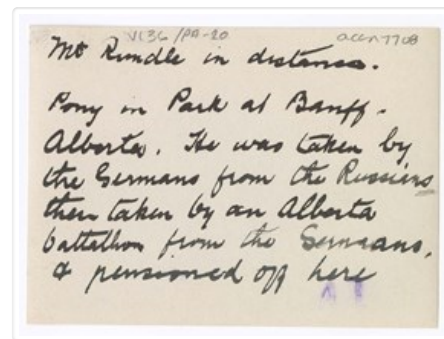 V136 /PA-20
accn 7708
Mt Rundle in distance.
Pony in Park at Banff.
Alberta. He was taken by
the Germans from the Russians
then taken by an Alberta
battallion from the Germans.
& pensioned off here